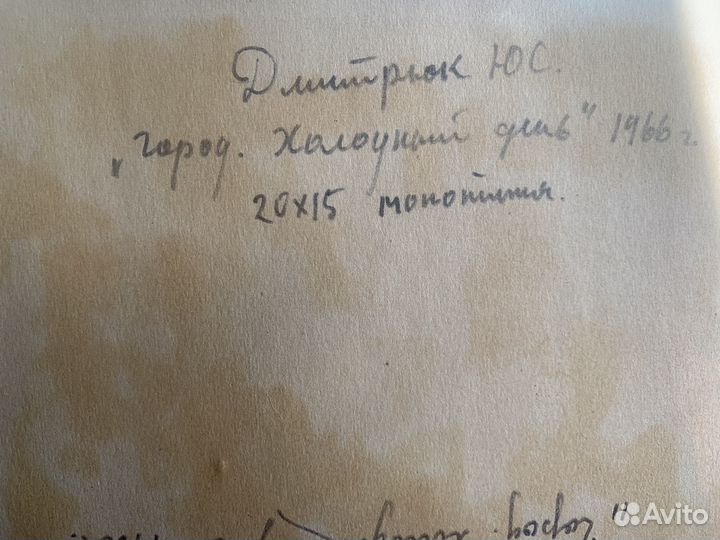 Дмитрюк Ю С.
„город. Холодный день" 1966 г.
20х15 монотипия.
"город.
Avito